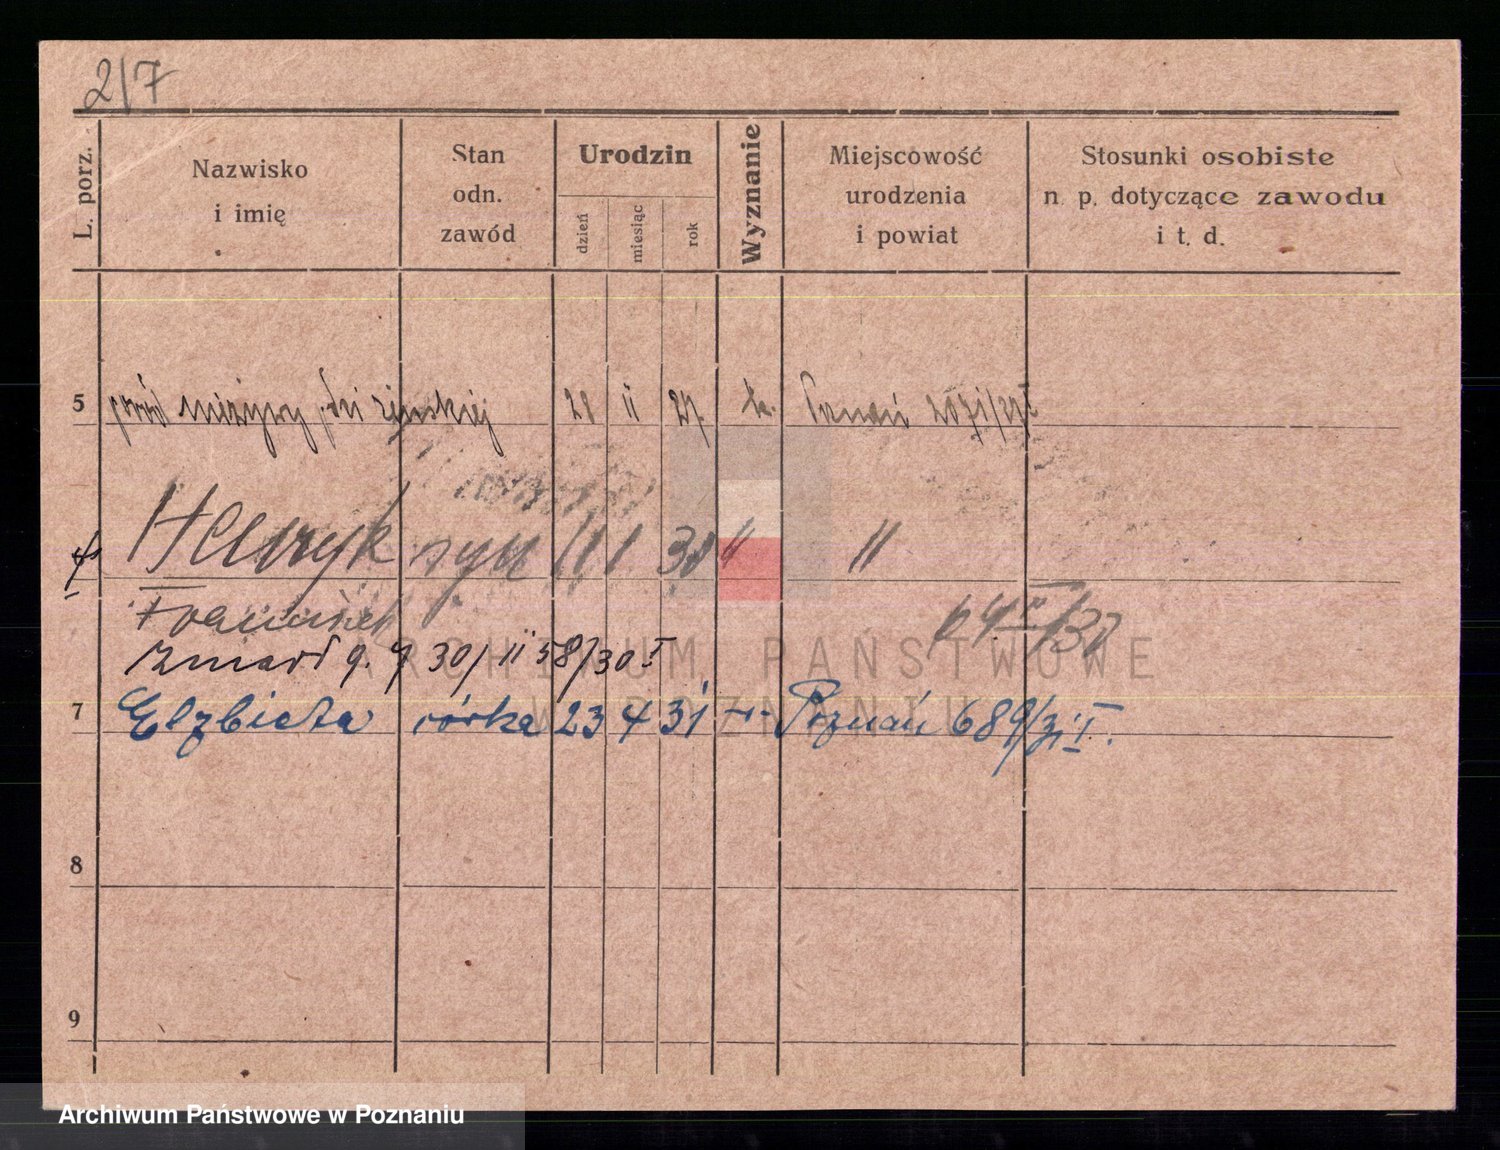 2/7
L. porz.
Nazwisko
i imię
Stan
odn.
zawód
Urodzin
dzień
miesiąc
rok
Wyznanie
Miejscowość
urodzenia
i powiat
Stosunki osobiste
n. p. dotyczące zawodu
i t. d.
5 poród nieżywy płci żeńskiej 28 11 27 k. Poznań
Henryk syn 11 1 30 " "
Franciszek 64 /30
zmarł 9. 30/II 58/30 I
7 Elżbieta córka 23 4 31 Poznań 689/31 I.
8
9
ARCHIWUM PAŃSTWOWE
W POZNANIU
Archiwum Państwowe w Poznaniu